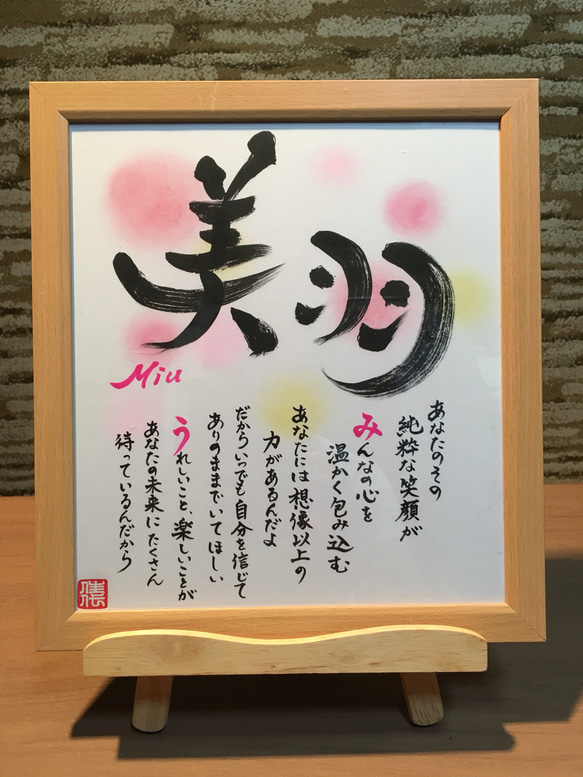 美羽
Miu
あなたのその
純粋な笑顔が
みんなの心を
温かく包み込む
あなたには想像以上の
力があるんだよ
だからいつでも自分を信じて
ありのままでいてほしい
うれしいこと、楽しいことが
あなたの未来にたくさん
待っているんだから